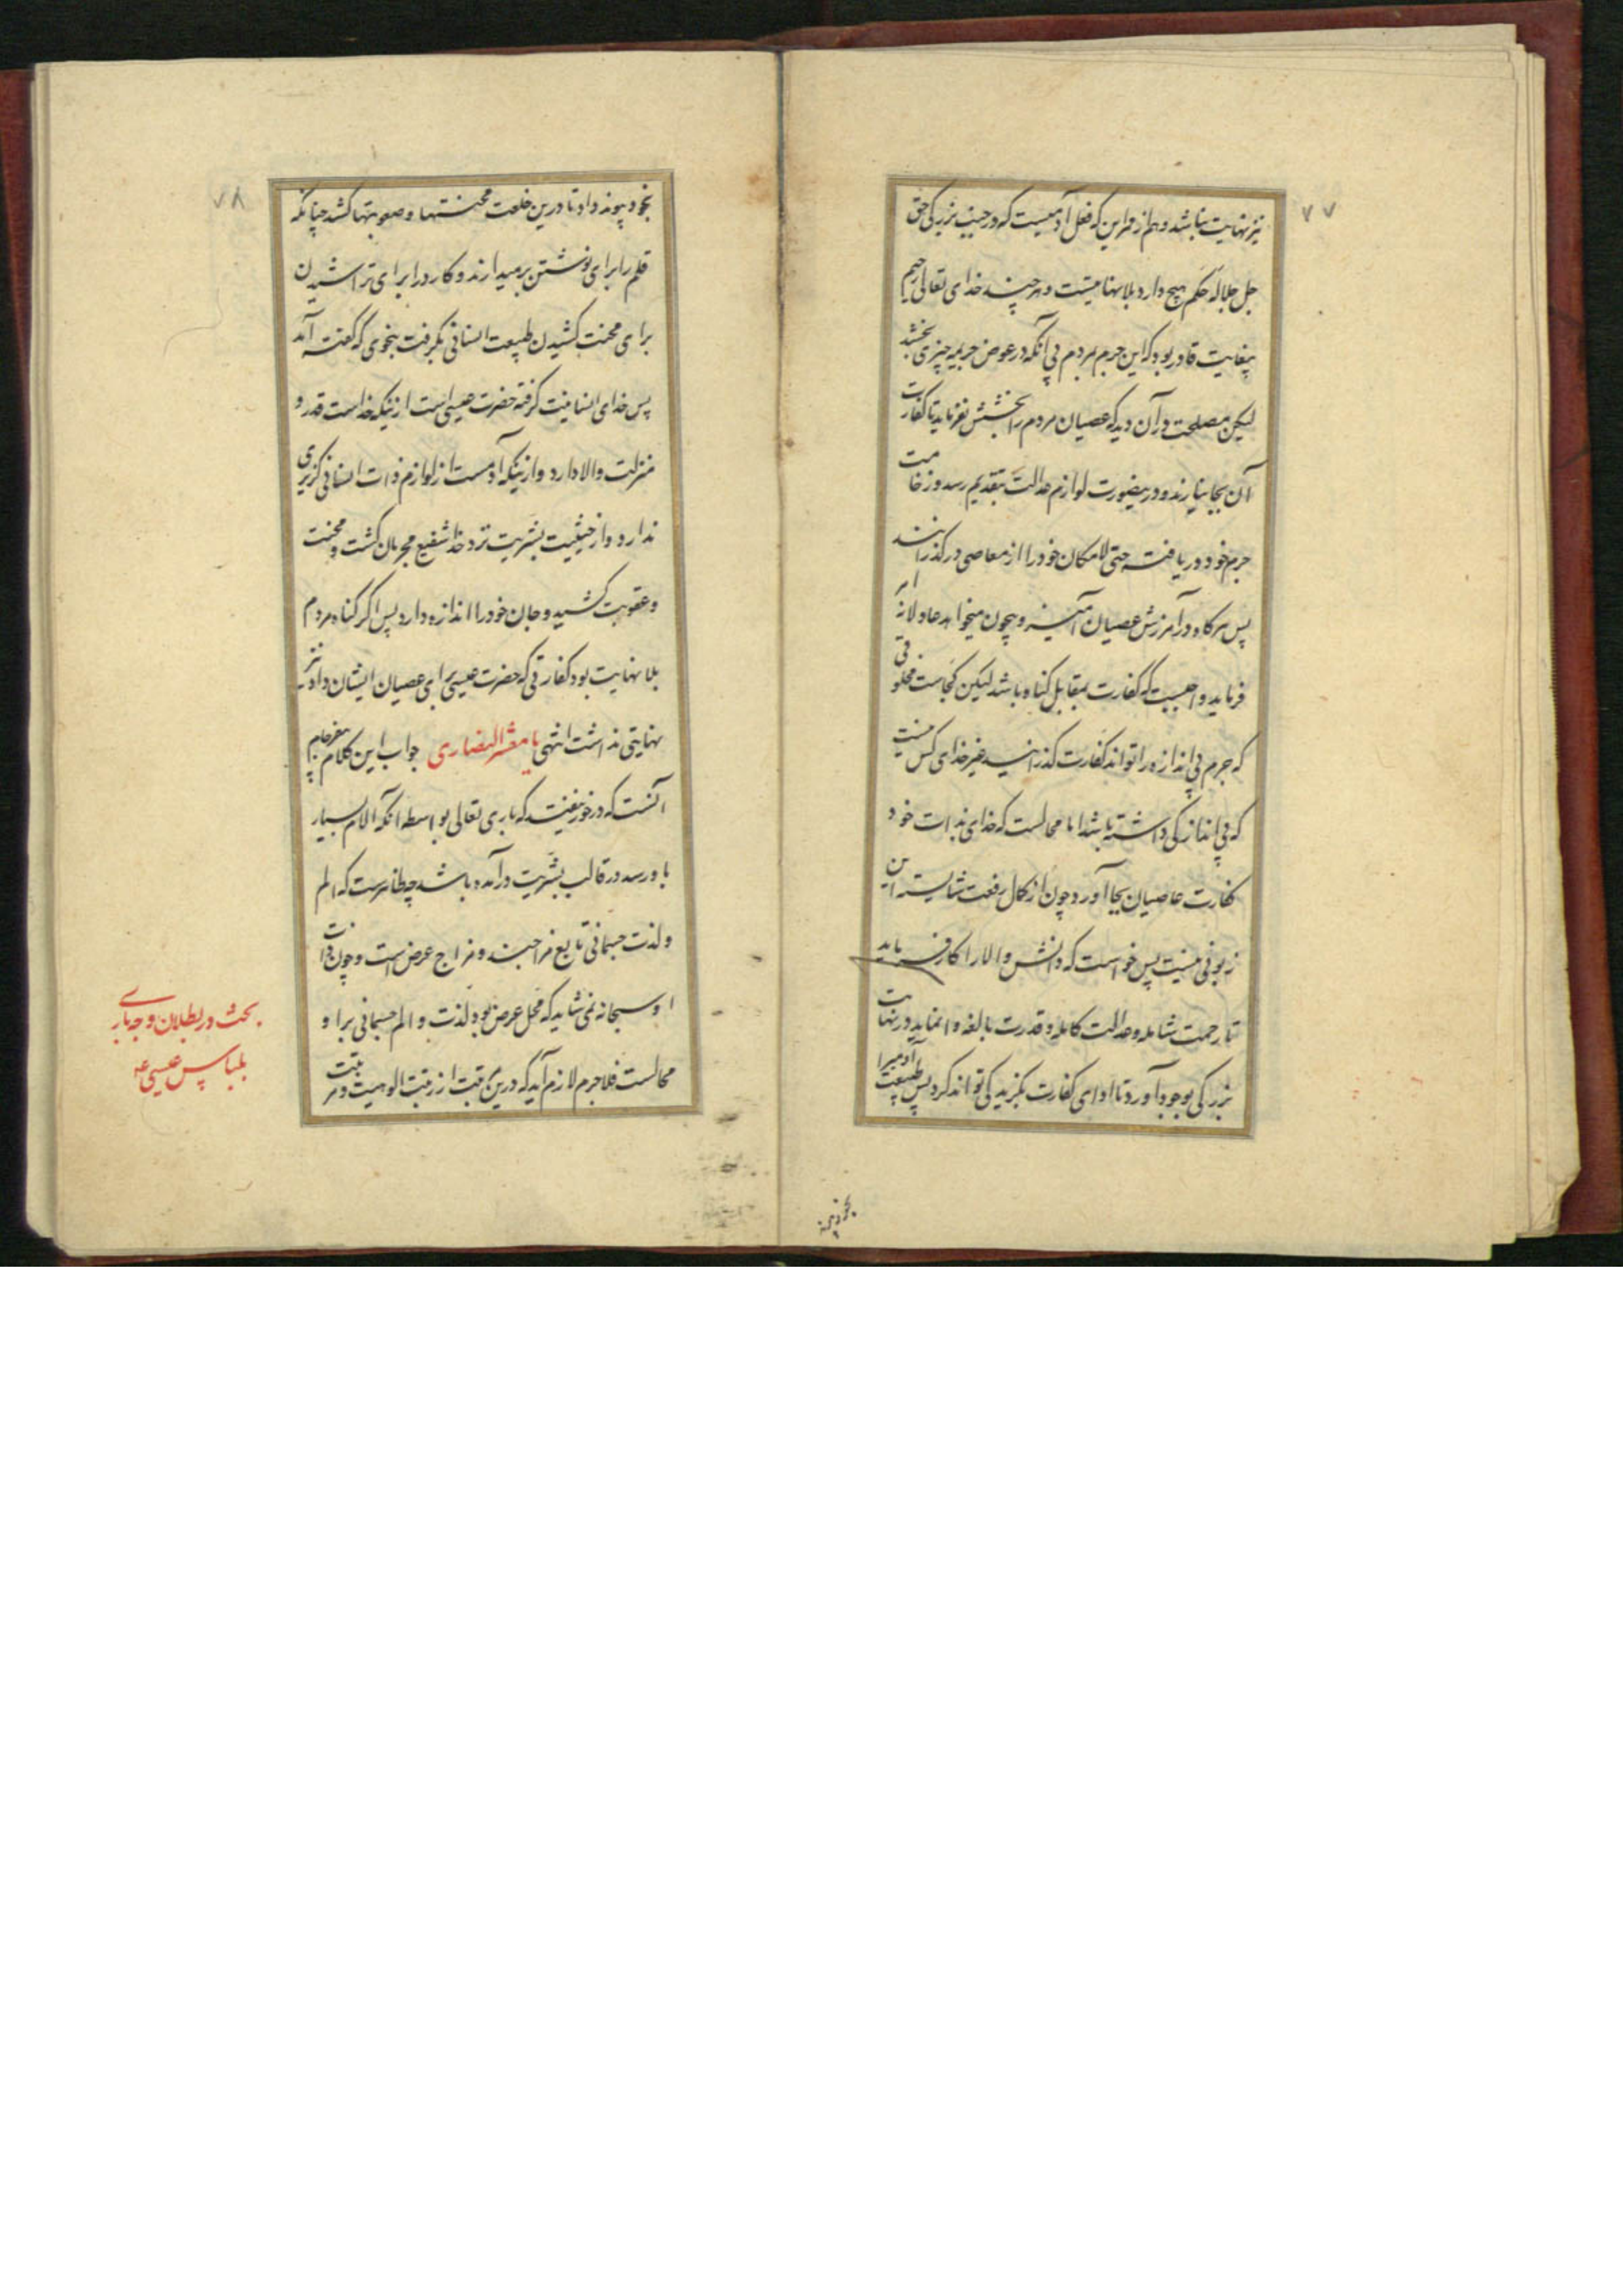 ۷۷
نیز نهایت نباشد و هم از قراین که فعل آدمیست که در جنب بزرگی حق
جل جلاله حکم هیچ دارد بلانهایتست و هر چند خدای تعالی رحیم
بیغایت قادر بود که این جرم مردم بی آنکه در عوض جریمه چیزی بخشد
لیکن مصلحت در آن دید که عصیان مردم را بخشش نفرماید تا کفارت
آن بجا نیارند و درینصورت لوازم عدالت بتقدیم رسد و وخامت
جرم خود دریافته حتی لامکان خود را از معاصی در گذرانند
پس هرگاه در آمرزش عصیان و چون میخواهد عادلانه
فرماید واجبست که کفارت بمقابل گناه باشد لیکن کجاست مخلوقی
که جرم بی اندازه را تواند کفارت گذرانید غیر خدای کس نیست
که بی اندازگی داشته باشد اما محالست که خدای بذات خود
کفارت عاصیان بجا آورد چون از کمال رفعت شایسته این
زبونی نیست پس خواست که دانش والا را کار فرماید
تا رحمت شامله و عدالت کامله و قدرت بالغه وا نماید و نهایت
بزرگی بوجود آورد تا ادای کفارت بگزید کی تواند کرد پس طبیعت آدمیرا
بخود پیوند
۷۸
بخود پیوند داد تا درین خلعت محنتها و صعوبتها کشد چنانکه
قلم را برای نوشتن برمیدارند و کارد را برای تراشیدن
برای محنت کشیدن طبیعت انسانی بگرفت بنحوی که گفته آمد
پس خدای انسانیت گرفته حضرت عیسی است ازینکه خداست قدر و
منزلت والا دارد و ازینکه آدمست از لوازم ذات انسانی گزیری
ندارد و از حیثیت بشریت نزد خدا شفیع مجرمان گشت و محنت
و عقوبت کشید و جان خود را اندازه دارد پس اگر گناه مردم
بلانهایت بود کفارتی که حضرت عیسی برای عصیان ایشان داد نیز
نهایتی نداشت انتهی یا معشر النصاری جواب این کلام
آنست که درخور نیست که باری تعالی بواسطه آنکه آلام بسیار
باو رسد در قالب بشریت درآمده باشد چه ظاهرست که الم
و لذت جسمانی تابع مزاجند و مزاج عرض است و چون ذات
او سبحانه نمی شاید که محل عرض بود لذت و الم جسمانی بر او
محالست فلاجرم لازم آید که درین مرتبت از رتبت الوهیت و مرتبت
بحث در بطلان وجه باری
بلباس عیسی عه